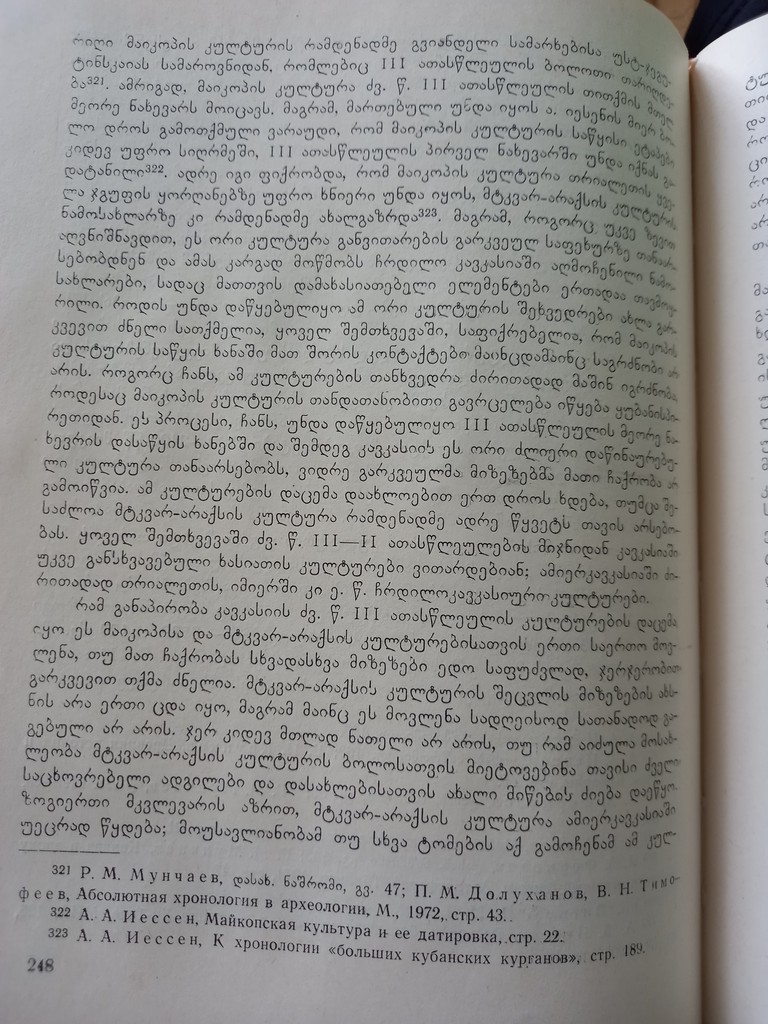 რიღი მაიკოპის კულტურის რამდენადმე გვიანდელი სამარხებისა უსტ-ჯეგუ-
ტინსკაიას სამაროვნიდან, რომლებიც III ათასწლეულის ბოლოთი თარიღდე-
ბა³²¹. ამრიგად, მაიკოპის კულტურა ძვ. წ. III ათასწლეულის თითქმის მთელ
მეორე ნახევარს მოიცავს. მაგრამ, მართებული უნდა იყოს ა. იესენის მიერ ბო-
ლო დროს გამოთქმული ვარაუდი, რომ მაიკოპის კულტურის საწყისი ეტაპები
კიდევ უფრო სიღრმეში, III ათასწლეულის პირველ ნახევარში უნდა იქნას გა-
დატანილი³²². ადრე იგი ფიქრობდა, რომ მაიკოპის კულტურა თრიალეთის ყვე-
ლა ჯგუფის ყორღანებზე უფრო ხნიერი უნდა იყოს, მტკვარ-არაქსის კულტურის
ნამოსახლარზე კი რამდენადმე ახალგაზრდა³²³. მაგრამ, როგორც უკვე ზევით
აღვნიშნავდით, ეს ორი კულტურა განვითარების გარკვეულ საფეხურზე თანაარ-
სებობდნენ და ამას კარგად მოწმობს ჩრდილო კავკასიაში აღმოჩენილი ნამო-
სახლარები, სადაც მათთვის დამახასიათებელი ელემენტები ერთადაა თავმოყ-
რილი. როდის უნდა დაწყებულიყო ამ ორი კულტურის შეხვედრები ახლა გარ-
კვევით ძნელი სათქმელია, ყოველ შემთხვევაში, საფიქრებელია, რომ მაიკოპის
კულტურის საწყის ხანაში მათ შორის კონტაქტები მაინცდამაინც საგრძნობი არ
არის. როგორც ჩანს, ამ კულტურების თანხვედრა ძირითადად მაშინ იგრძნობა,
როდესაც მაიკოპის კულტურის თანდათანობითი გავრცელება იწყება ყუბანისპი-
რეთიდან. ეს პროცესი, ჩანს, უნდა დაწყებულიყო III ათასწლეულის მეორე ნა-
ხევრის დასაწყის ხანებში და შემდეგ კავკასიის ეს ორი ძლიერი დაწინაურებუ-
ლი კულტურა თანაარსებობს, ვიდრე გარკვეულმა მიზეზებმა მათი ჩაქრობა არ
გამოიწვია. ამ კულტურების დაცემა დაახლოებით ერთ დროს ხდება, თუმცა შე-
საძლოა მტკვარ-არაქსის კულტურა რამდენადმე ადრე წყვეტს თავის არსებო-
ბას. ყოველ შემთხვევაში ძვ. წ. III—II ათასწლეულების მიჯნიდან კავკასიაში
უკვე განსხვავებული ხასიათის კულტურები ვითარდებიან; ამიერკავკასიაში ძი-
რითადად თრიალეთის, იმიერში კი ე. წ. ჩრდილოკავკასიური კულტურები.
რამ განაპირობა კავკასიის ძვ. წ. III ათასწლეულის კულტურების დაცემა,
იყო ეს მაიკოპისა და მტკვარ-არაქსის კულტურებისათვის ერთი საერთო მოვ-
ლენა, თუ მათ ჩაქრობას სხვადასხვა მიზეზები ედო საფუძვლად, ჯერჯერობით
გარკვევით თქმა ძნელია. მტკვარ-არაქსის კულტურის შეცვლის მიზეზების ახს-
ნის არა ერთი ცდა იყო, მაგრამ მაინც ეს მოვლენა სადღეისოდ სათანადოდ გა-
გებული არ არის. ჯერ კიდევ მთლად ნათელი არ არის, თუ რამ აიძულა მოსახ-
ლეობა მტკვარ-არაქსის კულტურის ბოლოსათვის მიეტოვებინა თავისი ძველი
საცხოვრებელი ადგილები და დასახლებისათვის ახალი მიწების ძიება დაეწყო.
ზოგიერთი მკვლევარის აზრით, მტკვარ-არაქსის კულტურა ამიერკავკასიაში
უეცრად წყდება; მოუსავლიანობამ თუ სხვა ტომების აქ გამოჩენამ ამ კულ-
³²¹ Р. М. Мунчаев, დასახ. ნაშრომი, გვ. 47; П. М. Долуханов, В. Н. Тимо-
феев, Абсолютная хронология в археологии, М., 1972, стр. 43.
³²² А. А. Иессен, Майкопская культура и ее датировка, стр. 22.
³²³ А. А. Иессен, К хронологии «больших кубанских курганов», стр. 189.
248